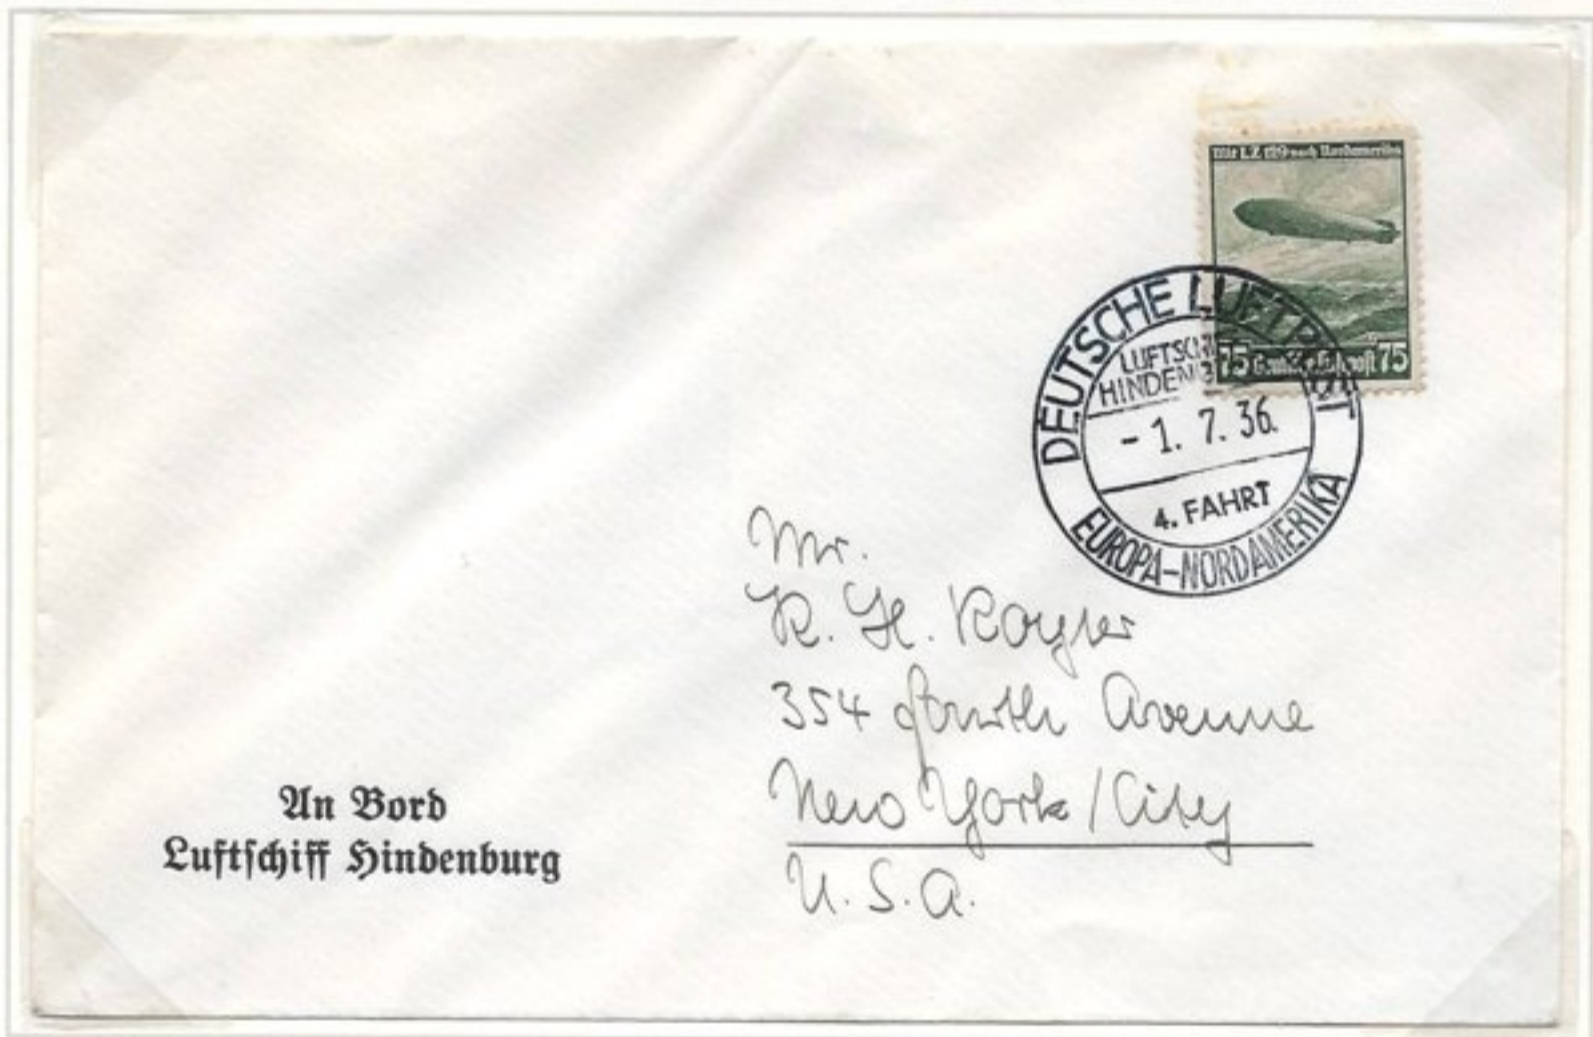 Mit LZ 129 nach Nordamerika
75 Deutsche Luftpost 75
DEUTSCHE LUFTPOST
LUFTSCHIFF
HINDENBURG
- 1. 7. 36.
4. FAHRT
EUROPA-NORDAMERIKA
Mr.
K. H. Royter
354 Fourth Avenue
New York / City
U. S. A.
An Bord
Luftschiff Hindenburg